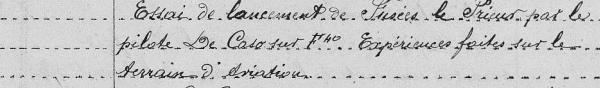 Essai de lancement de Fusées le Prieur par le
pilote De Caso sur F40 Expériences faites sur le
terrain d'Aviation